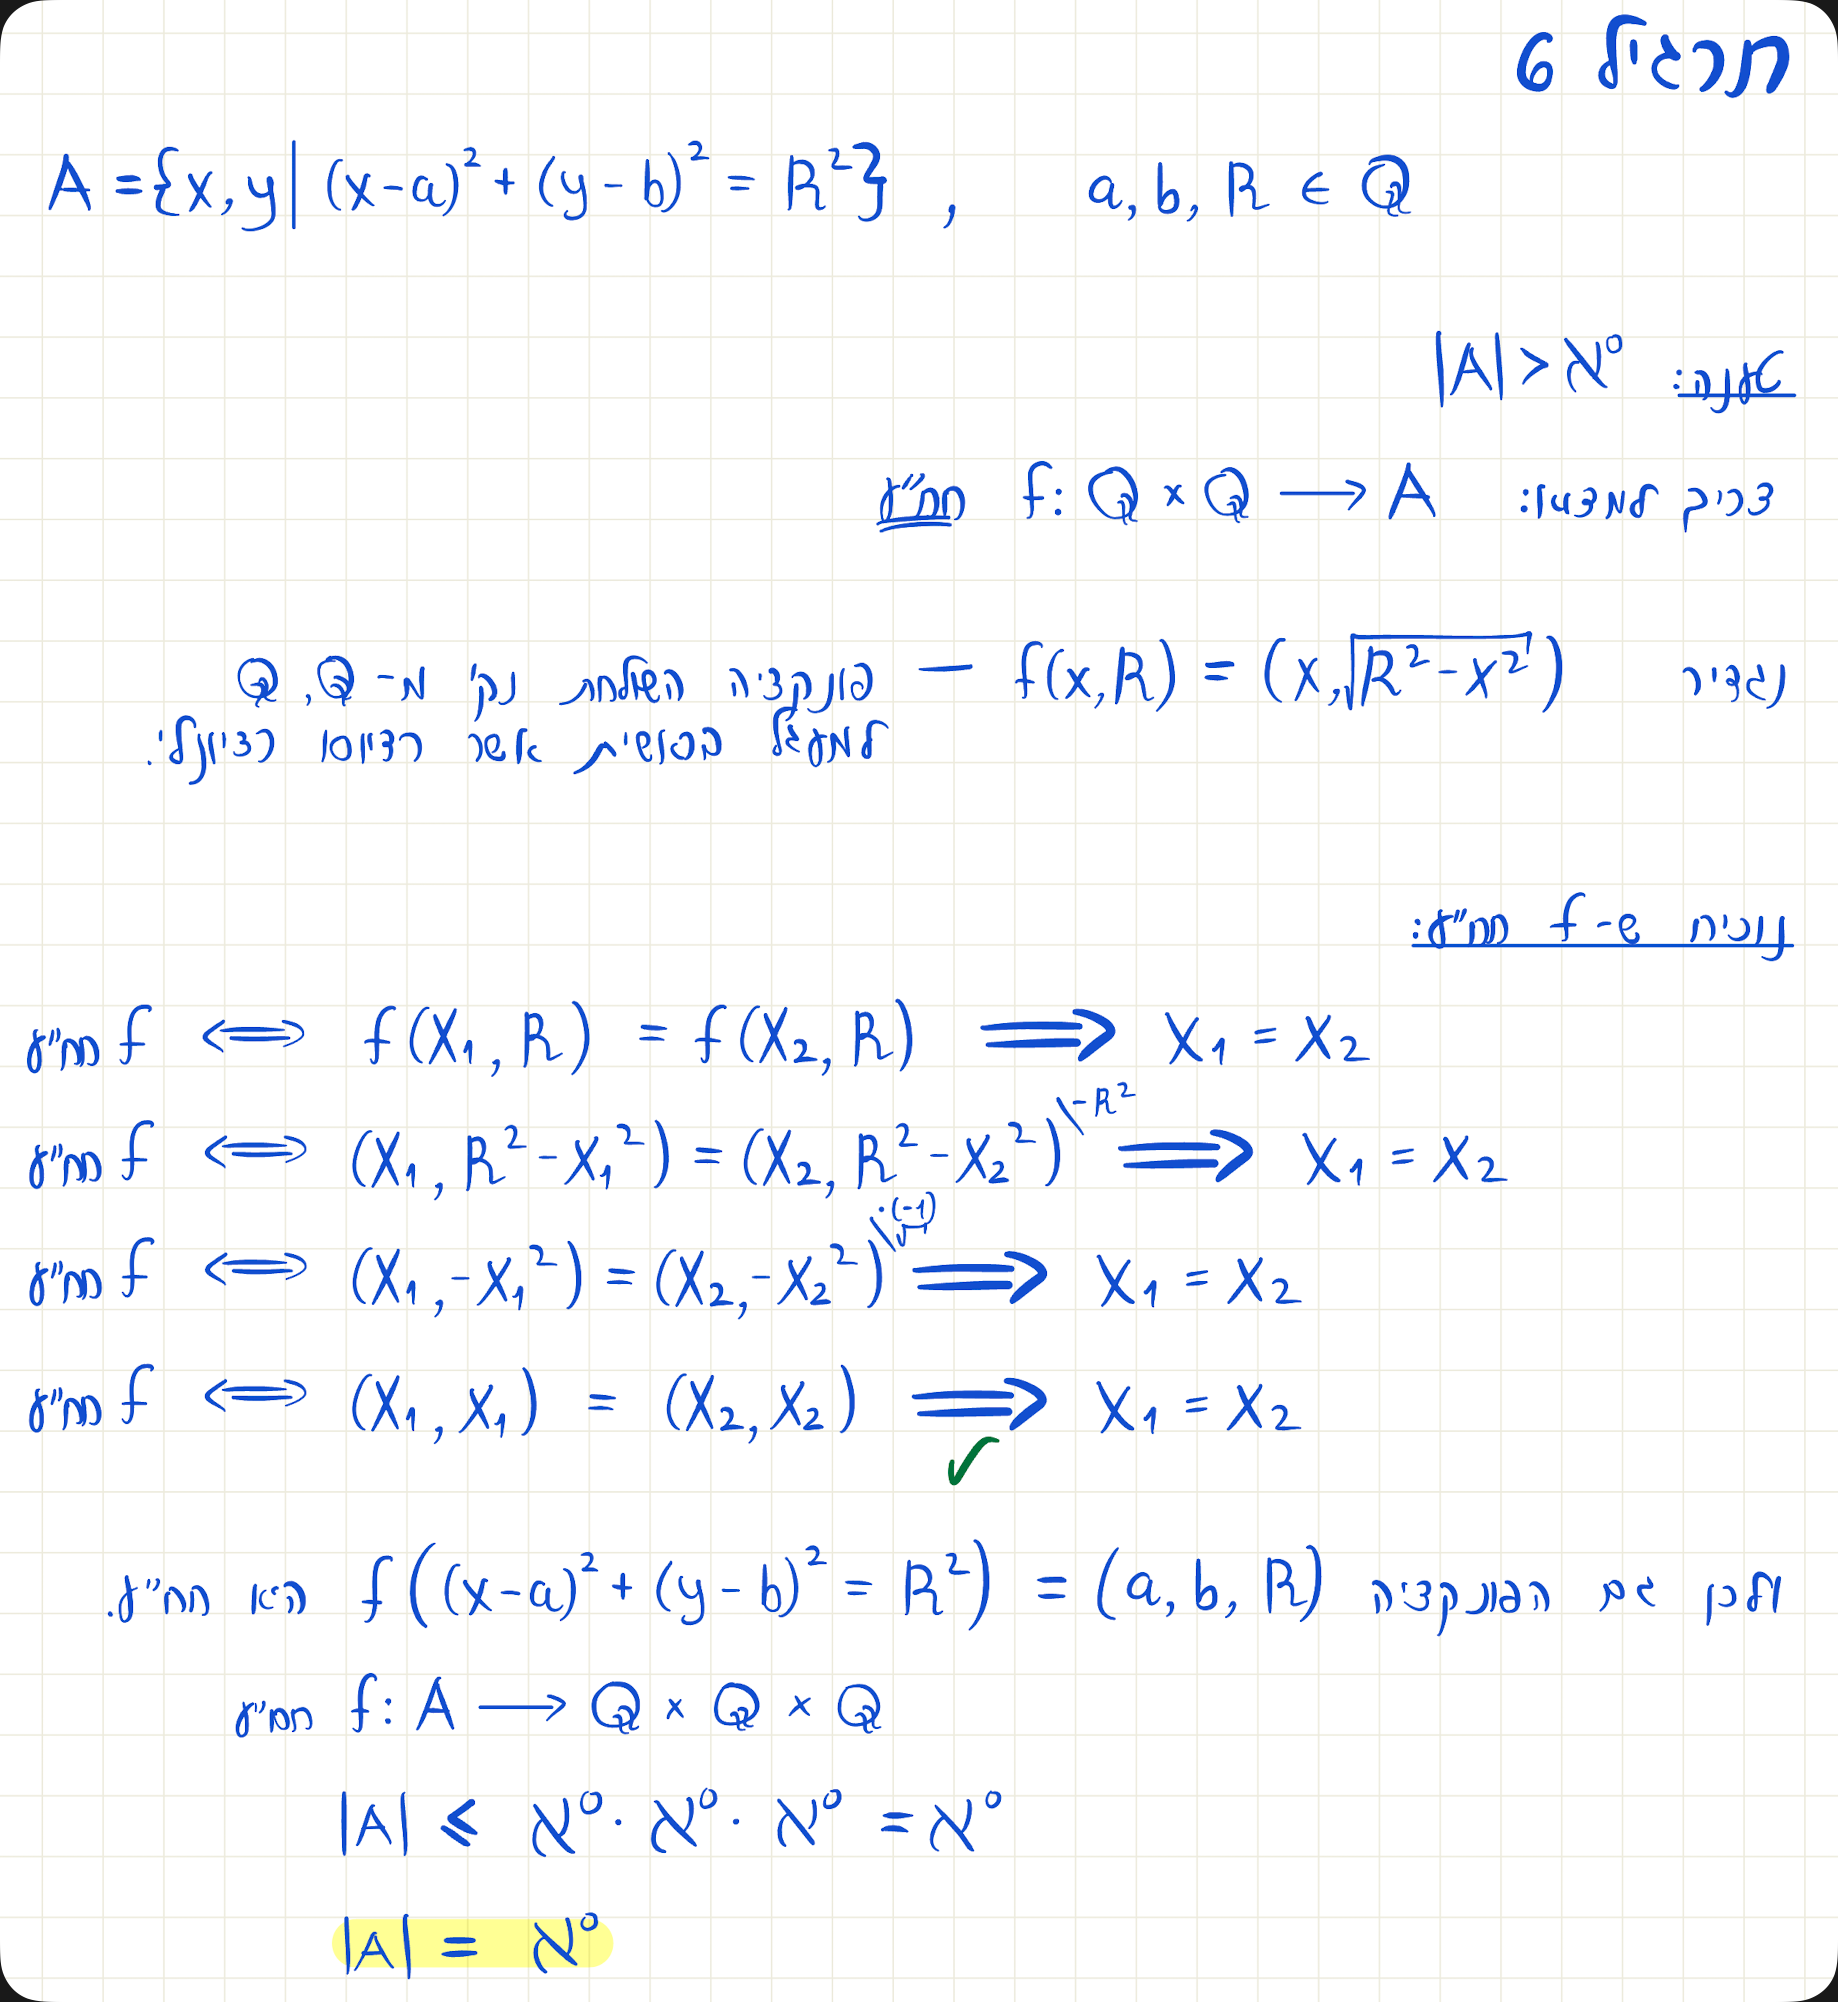 תרגיל 6
A = {x,y | (x-a)² + (y-b)² = R²} , a, b, R ∈ ℚ
טענה: |A| > א⁰
צריך למצוא: f: ℚ × ℚ → A חח"ע
נגדיר f(x,R) = (x, √(R²-x²)) — פונקציה השולחת נק' מ- ℚ, ℚ
למעגל בראשית אשר רדיוסו רציונלי.
נוכיח ש-f חח"ע:
f חח"ע ⟺ f(X₁, R) = f(X₂, R) ⟹ X₁ = X₂
f חח"ע ⟺ (X₁, R²-X₁²) = (X₂, R²-X₂²) \-R² ⟹ X₁ = X₂
f חח"ע ⟺ (X₁, -X₁²) = (X₂, -X₂²) \·(-1) √ ⟹ X₁ = X₂
f חח"ע ⟺ (X₁, X₁) = (X₂, X₂) ⟹ X₁ = X₂
✓
ולכן גם הפונקציה f((x-a)² + (y-b)² = R²) = (a, b, R) היא חח"ע.
f: A → ℚ × ℚ × ℚ חח"ע
|A| ≤ א⁰ · א⁰ · א⁰ = א⁰
|A| = א⁰